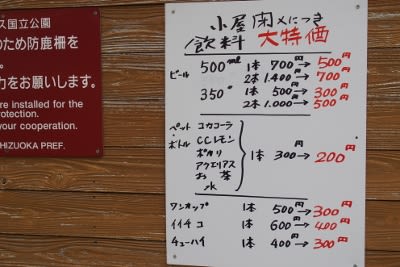 ス国立公園
のため防鹿柵を
。
力をお願いします。
re installed for the
rotection.
your cooperation.
HIZUOKA PREF.
小屋閉メにつき
飲料 大特価
ビール 500ml 1本 700円→500円
2本 1.400→700円
350〃 1本 500円→300円
2本 1.000→500円
ペット・ボトル コカコーラ
CCレモン
ポカリ
アクエリアス 1本 300円→200円
お茶
水
ワンカップ 1本 500円→300円
イイチコ 1本 600→400円
チューハイ 1本 400→300円